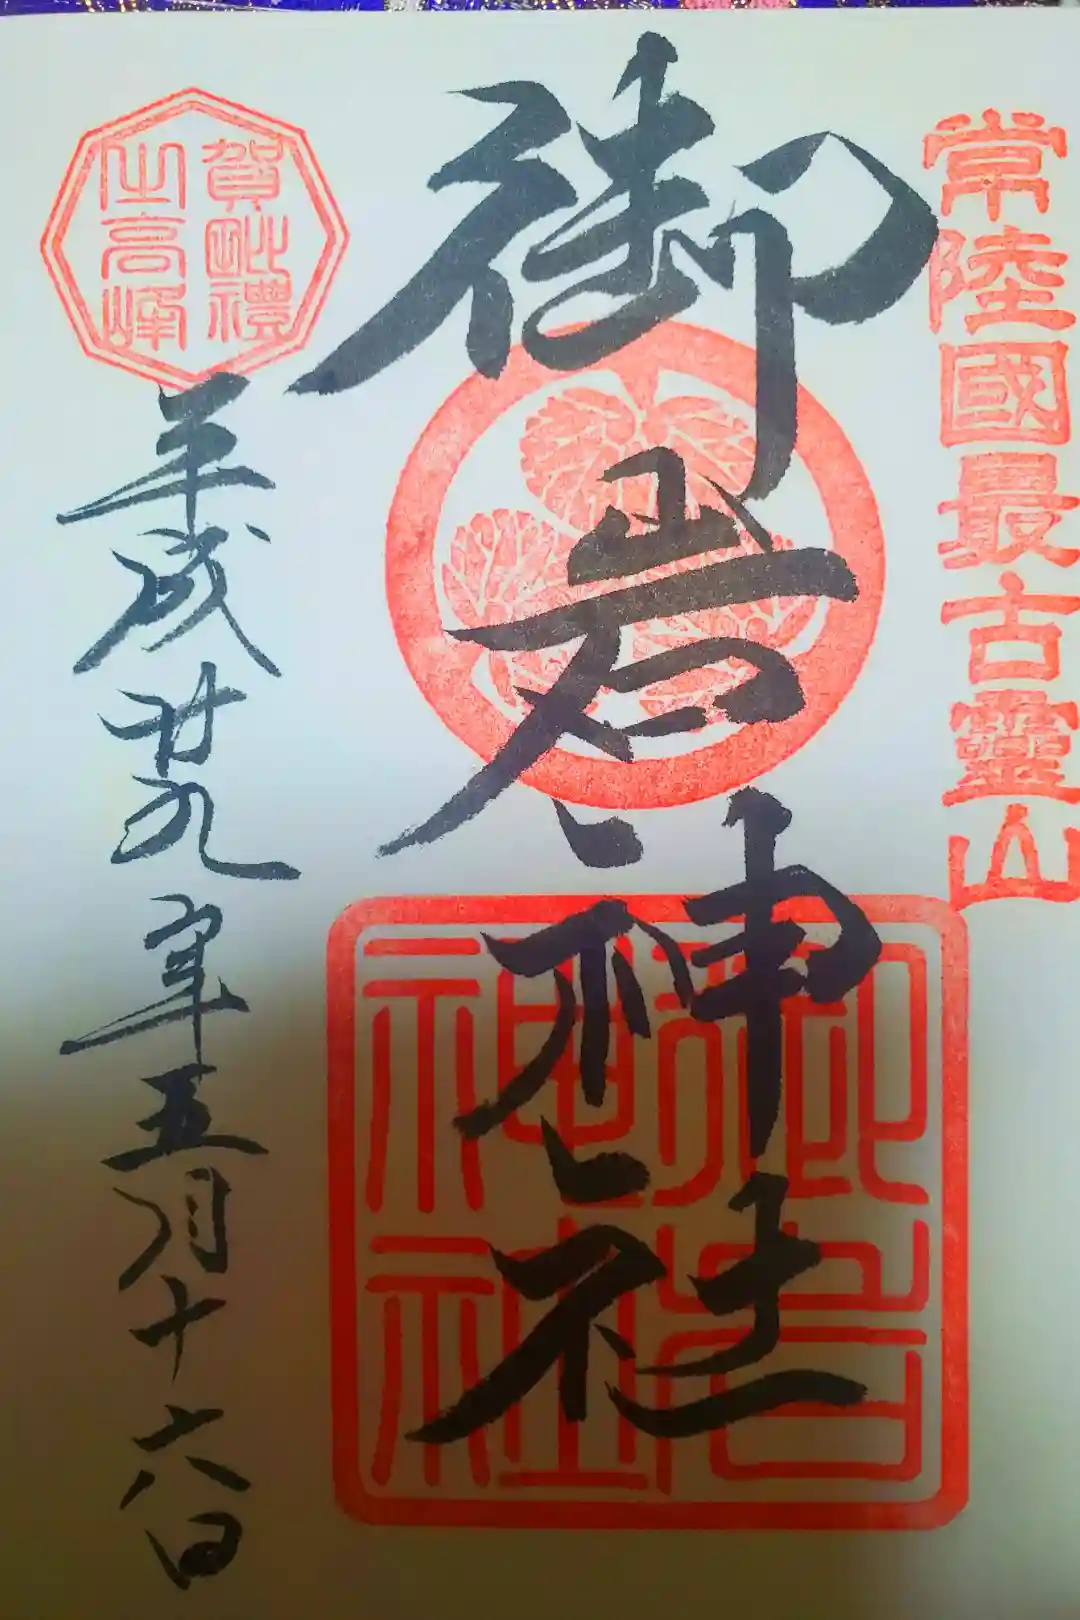 常陸國最古靈山
御岩神社
御岩
神社
賀毗禮
之高峰
平成廿九年五月十六日